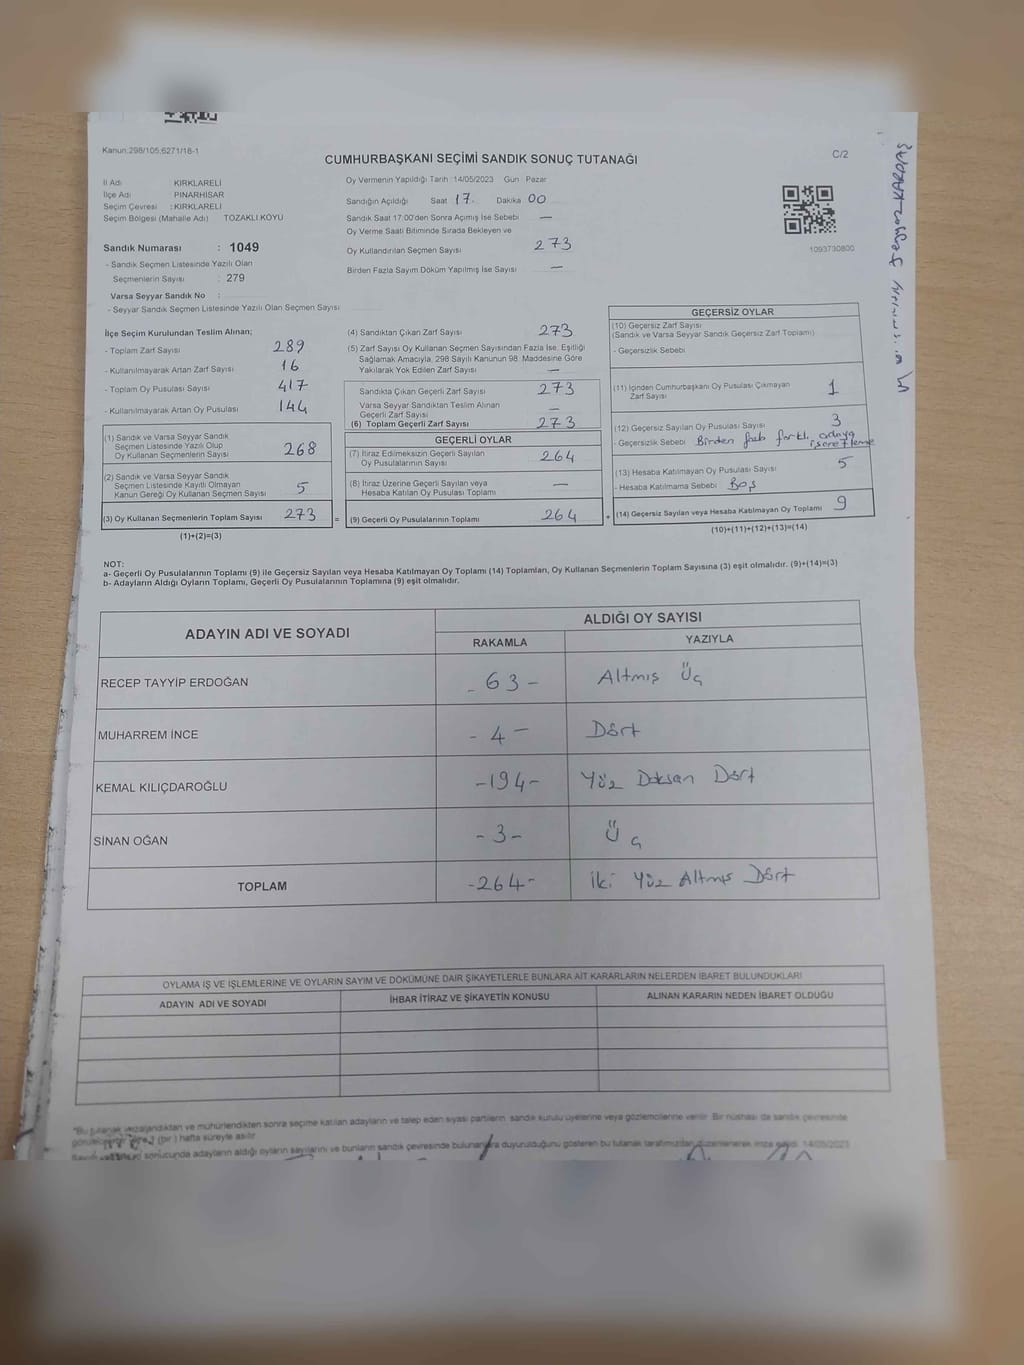 Kanun:298/105,6271/18-1
CUMHURBAŞKANI SEÇİMİ SANDIK SONUÇ TUTANAĞI
C/2
İl Adı KIRKLARELİ
İlçe Adı PINARHİSAR
Seçim Çevresi : KIRKLARELİ
Seçim Bölgesi (Mahalle Adı) TOZAKLI KÖYÜ
Sandık Numarası : 1049
- Sandık Seçmen Listesinde Yazılı Olan
Seçmenlerin Sayısı : 279
Varsa Seyyar Sandık No :
- Seyyar Sandık Seçmen Listesinde Yazılı Olan Seçmen Sayısı
Oy Vermenin Yapıldığı Tarih :14/05/2023 Gün Pazar
Sandığın Açıldığı Saat 17. Dakika 00
Sandık Saat 17:00'den Sonra Açımış İse Sebebi —
Oy Verme Saati Bitiminde Sırada Bekleyen ve
Oy Kullandırılan Seçmen Sayısı 273
Birden Fazla Sayım Döküm Yapılmış İse Sayısı —
1093730800
İlçe Seçim Kurulundan Teslim Alınan;
- Toplam Zarf Sayısı 289
- Kullanılmayarak Artan Zarf Sayısı 16
- Toplam Oy Pusulası Sayısı 417
- Kullanılmayarak Artan Oy Pusulası 144
(1) Sandık ve Varsa Seyyar Sandık
Seçmen Listesinde Yazılı Olup
Oy Kullanan Seçmenlerin Sayısı 268
(2) Sandık ve Varsa Seyyar Sandık
Seçmen Listesinde Kayıtlı Olmayan
Kanun Gereği Oy Kullanan Seçmen Sayısı 5
(3) Oy Kullanan Seçmenlerin Toplam Sayısı 273 =
(1)+(2)=(3)
(4) Sandıktan Çıkan Zarf Sayısı 273
(5) Zarf Sayısı Oy Kullanan Seçmen Sayısından Fazla İse, Eşitliği
Sağlamak Amacıyla, 298 Sayılı Kanunun 98. Maddesine Göre
Yakılarak Yok Edilen Zarf Sayısı —
Sandıkta Çıkan Geçerli Zarf Sayısı 273
Varsa Seyyar Sandıktan Teslim Alınan
Geçerli Zarf Sayısı —
(6) Toplam Geçerli Zarf Sayısı 273
GEÇERLİ OYLAR
(7) İtiraz Edilmeksizin Geçerli Sayılan
Oy Pusulalarının Sayısı 264
(8) İtiraz Üzerine Geçerli Sayılan veya
Hesaba Katılan Oy Pusulası Toplamı —
(9) Geçerli Oy Pusulalarının Toplamı 264 +
GEÇERSİZ OYLAR
(10) Geçersiz Zarf Sayısı
(Sandık ve Varsa Seyyar Sandık Geçersiz Zarf Toplamı)
- Geçersizlik Sebebi
(11) İçinden Cumhurbaşkanı Oy Pusulası Çıkmayan
Zarf Sayısı 1
(12) Geçersiz Sayılan Oy Pusulası Sayısı 3
- Geçersizlik Sebebi Birden farklı adaya
işaretleme
(13) Hesaba Katılmayan Oy Pusulası Sayısı 5
- Hesaba Katılmama Sebebi Boş
(14) Geçersiz Sayılan veya Hesaba Katılmayan Oy Toplamı 9
(10)+(11)+(12)+(13)=(14)
NOT:
a- Geçerli Oy Pusulalarının Toplamı (9) ile Geçersiz Sayılan veya Hesaba Katılmayan Oy Toplamı (14) Toplamları, Oy Kullanan Seçmenlerin Toplam Sayısına (3) eşit olmalıdır. (9)+(14)=(3)
b- Adayların Aldığı Oyların Toplamı, Geçerli Oy Pusulalarının Toplamına (9) eşit olmalıdır.
ADAYIN ADI VE SOYADI
ALDIĞI OY SAYISI
RAKAMLA YAZIYLA
RECEP TAYYİP ERDOĞAN - 63 - Altmış Üç
MUHARREM İNCE - 4 - Dört
KEMAL KILIÇDAROĞLU -194- Yüz Doksan Dört
SİNAN OĞAN - 3 - Üç
TOPLAM -264- İki Yüz Altmış Dört
OYLAMA İŞ VE İŞLEMLERİNE VE OYLARIN SAYIM VE DÖKÜMÜNE DAİR ŞİKAYETLERLE BUNLARA AİT KARARLARIN NELERDEN İBARET BULUNDUKLARI
ADAYIN ADI VE SOYADI İHBAR İTİRAZ VE ŞİKAYETİN KONUSU ALINAN KARARIN NEDEN İBARET OLDUĞU
"Bu tutanak imzalandıktan ve mühürlendikten sonra seçime katılan adayların ve talep eden siyasi partilerin sandık kurulu üyelerine veya gözlemcilerine verilir. Bir nüshası da sandık çevresinde
(bir) hafta süreyle asılır.
sonucunda adayların aldığı oyların sayılarını ve bunların sandık çevresinde bulunanlara duyurulduğunu gösteren bu tutanak tarafımızdan düzenlenerek imza edildi. 14/05/2023